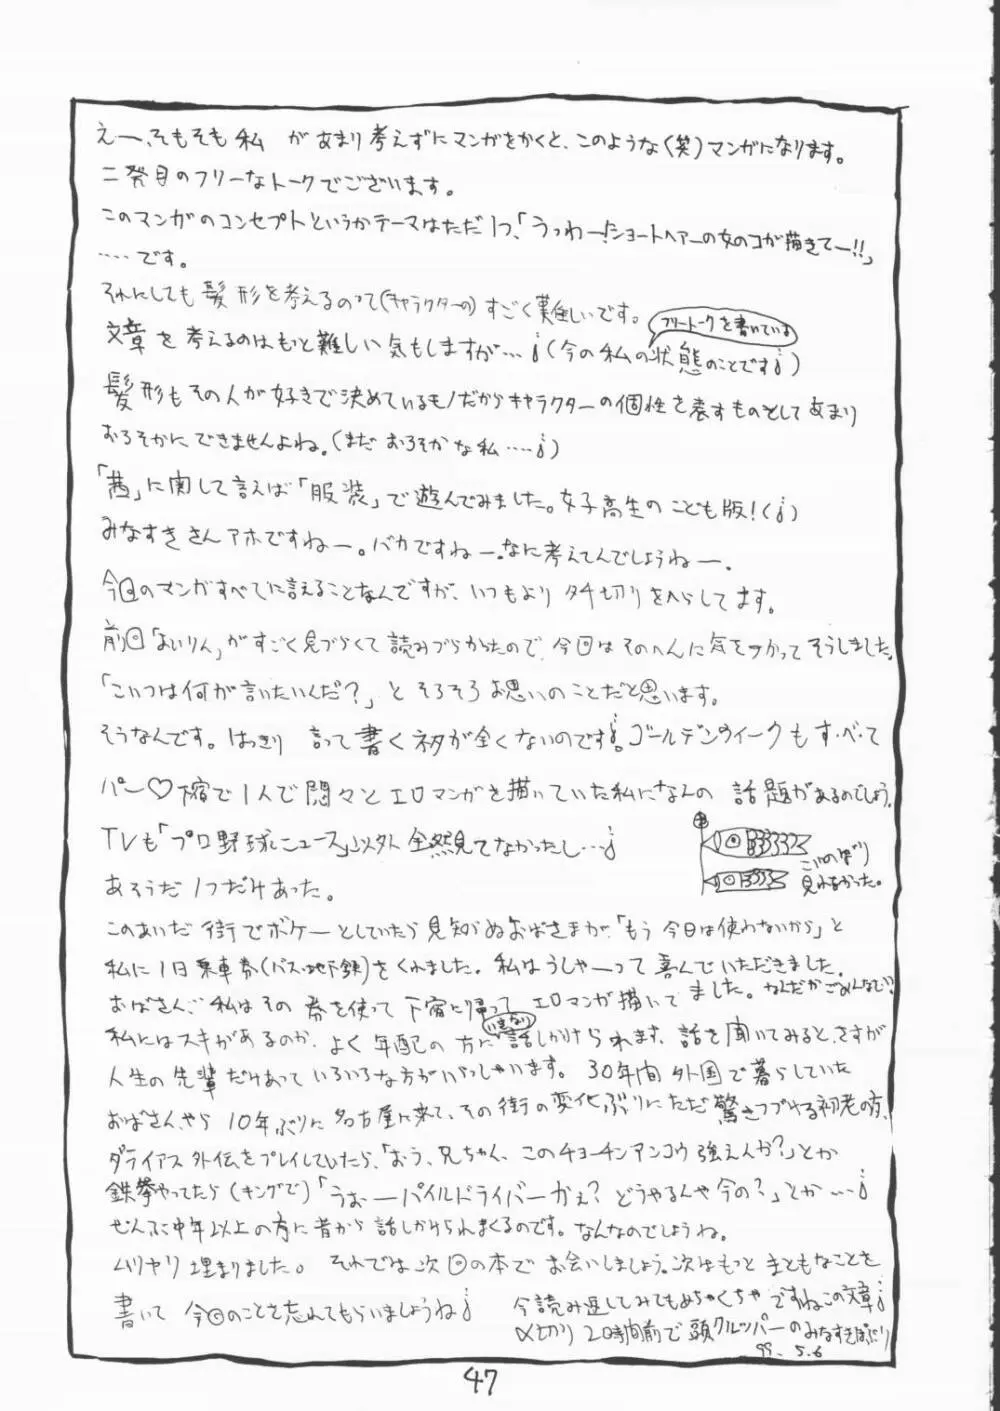 えー、そもそも私 があまり考えずにマンガをかくと、このような(笑)マンガになります。
二発目のフリーなトークでございます。
このマンガのコンセプトというかテーマはただ1つ、「うっわー!ショートヘアーの女のコが描きてー!!」
……です。
それにしても髪形を考えるのって(キャラクターの)すごく難しいです。
フリートークを書いている
文章を考えるのはもっと難しい気もしますが…(今の私の状態のことです)
髪形もその人が好きで決めているモノだからキャラクターの個性を表すものとしてあまり
おろそかにできませんよね。(まだおろそかな私……)
「茜」に関して言えば「服装」で遊んでみました。女子高生のこども版!()
みなすきさんアホですねー。バカですねー。なに考えてんでしょうねー。
今回のマンガすべてに言えることなんですが、いつもよりタチ切りをへらしてます。
前回「よいりん」がすごく見づらくて読みづらかったので、今回はそのへんに気をつかってそうしました。
「こいつは何が言いたいんだ?」とそろそろお思いのことだと思います。
そうなんです。はっきり言って書くネタが全くないのです。ゴールデンウィークもす・べ・て
パー♡下宿で1人で悶々とエロマンガを描いていた私になんの話題があるのでしょう。
TVも「プロ野球ニュース」以外全然見てなかったし…
こいのぼり
見れなかった。
あそうだ1つだけあった。
このあいだ街でボケーとしていたら見知らぬおばさまが、「もう今日は使わないから」と
私に1日乗車券(バス・地下鉄)をくれました。私はうしゃーって喜んでいただきました。
おばさん、私はその券を使って下宿に帰ってエロマンガ描いてました。なんだかごめんなさい。
私にはスキがあるのか、よく年配の方にいきなり話しかけられます。話を聞いてみると、さすが
人生の先輩だけあっていろいろな方がいらっしゃいます。30年間外国で暮らしていた
おばさんやら10年ぶりに名古屋に来て、その街の変化ぶりにただ驚きつづける初老の方、
ダライアス外伝をプレイしていたら、「おう、兄ちゃん、このチョーチンアンコウ強えんか?」とか
鉄拳やってたら(キングで)「うぉーパイルドライバーかぇ?どうやるんや今の?」とか…
ぜんぶ中年以上の方に昔から話しかけられまくるのです。なんなのでしょうね。
ムリヤリ埋まりました。それでは次回の本でお会いしましょう。次はもっとまともなことを
書いて今回のことを忘れてもらいましょうね
今読み返してみてもめちゃくちゃですねこの文章
〆切り20時間前で頭クルッパーのみなすきぽぷり
99.5.6
47